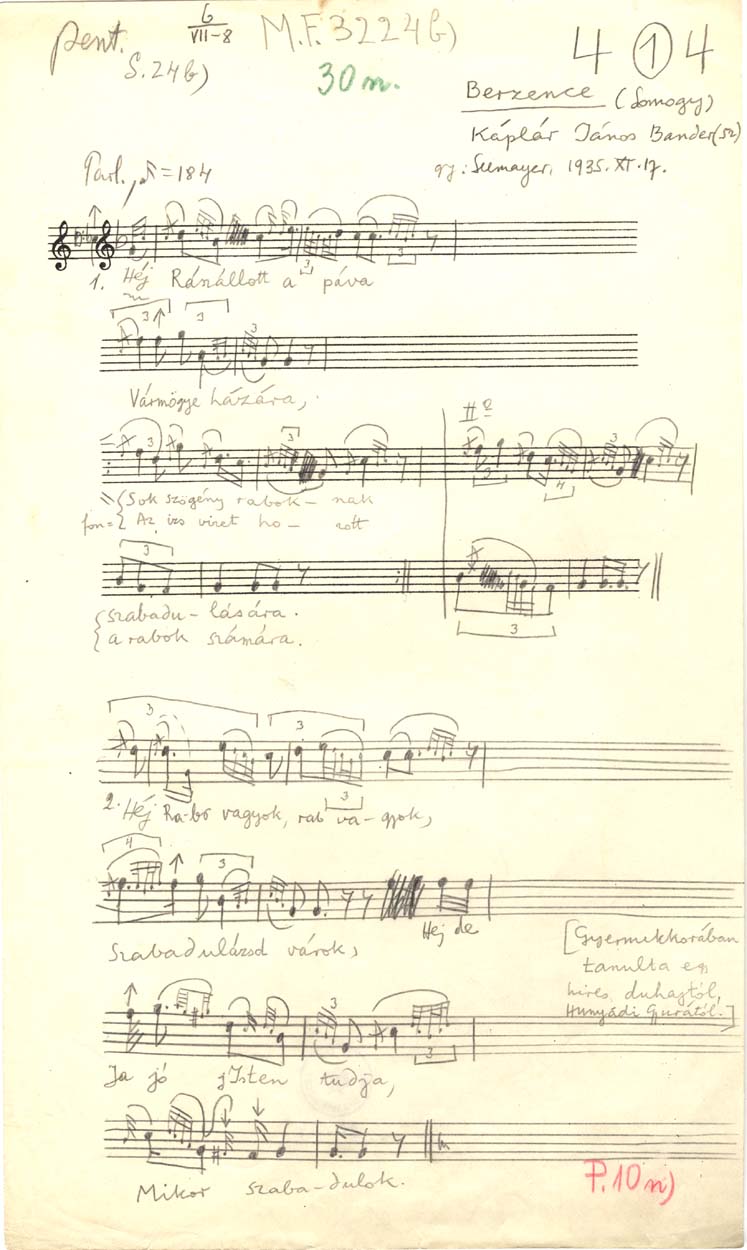 pent. 6/VII-8 M.F. 3224b) 4 ① 4
S.24b) 30 m.
Berzence (Somogy)
Káplár János Bander (52)
gy: Seemayer, 1935. XI. 17.
Parl., ♪ = 184
1. Héj Ránállott a páva
Vármögye házára,
II°
Sok szögény rabok- nak
fon= Az izs vizet ho-
szabadu- lására.
a rabok számára.
2. Héj Ra-bó vagyok, rab va- gyok,
Szabadulázsd várok,
Hej de
[Gyermekkorában
tanulta egy
hires duhajtól,
Hunyádi Gyurától.]
Ja jó jIsten tudja,
Mikor szaba-dulok.
P. 10 n)